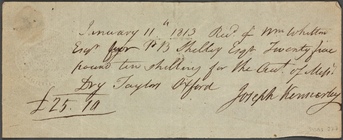 January 11th 1813 Recd of Wm Whitton
Esqr for P B Shelley Esqr Twenty five
pound ten shillings for the Acct of Messrs
Dry Taylor Oxford
£25.10 Joseph